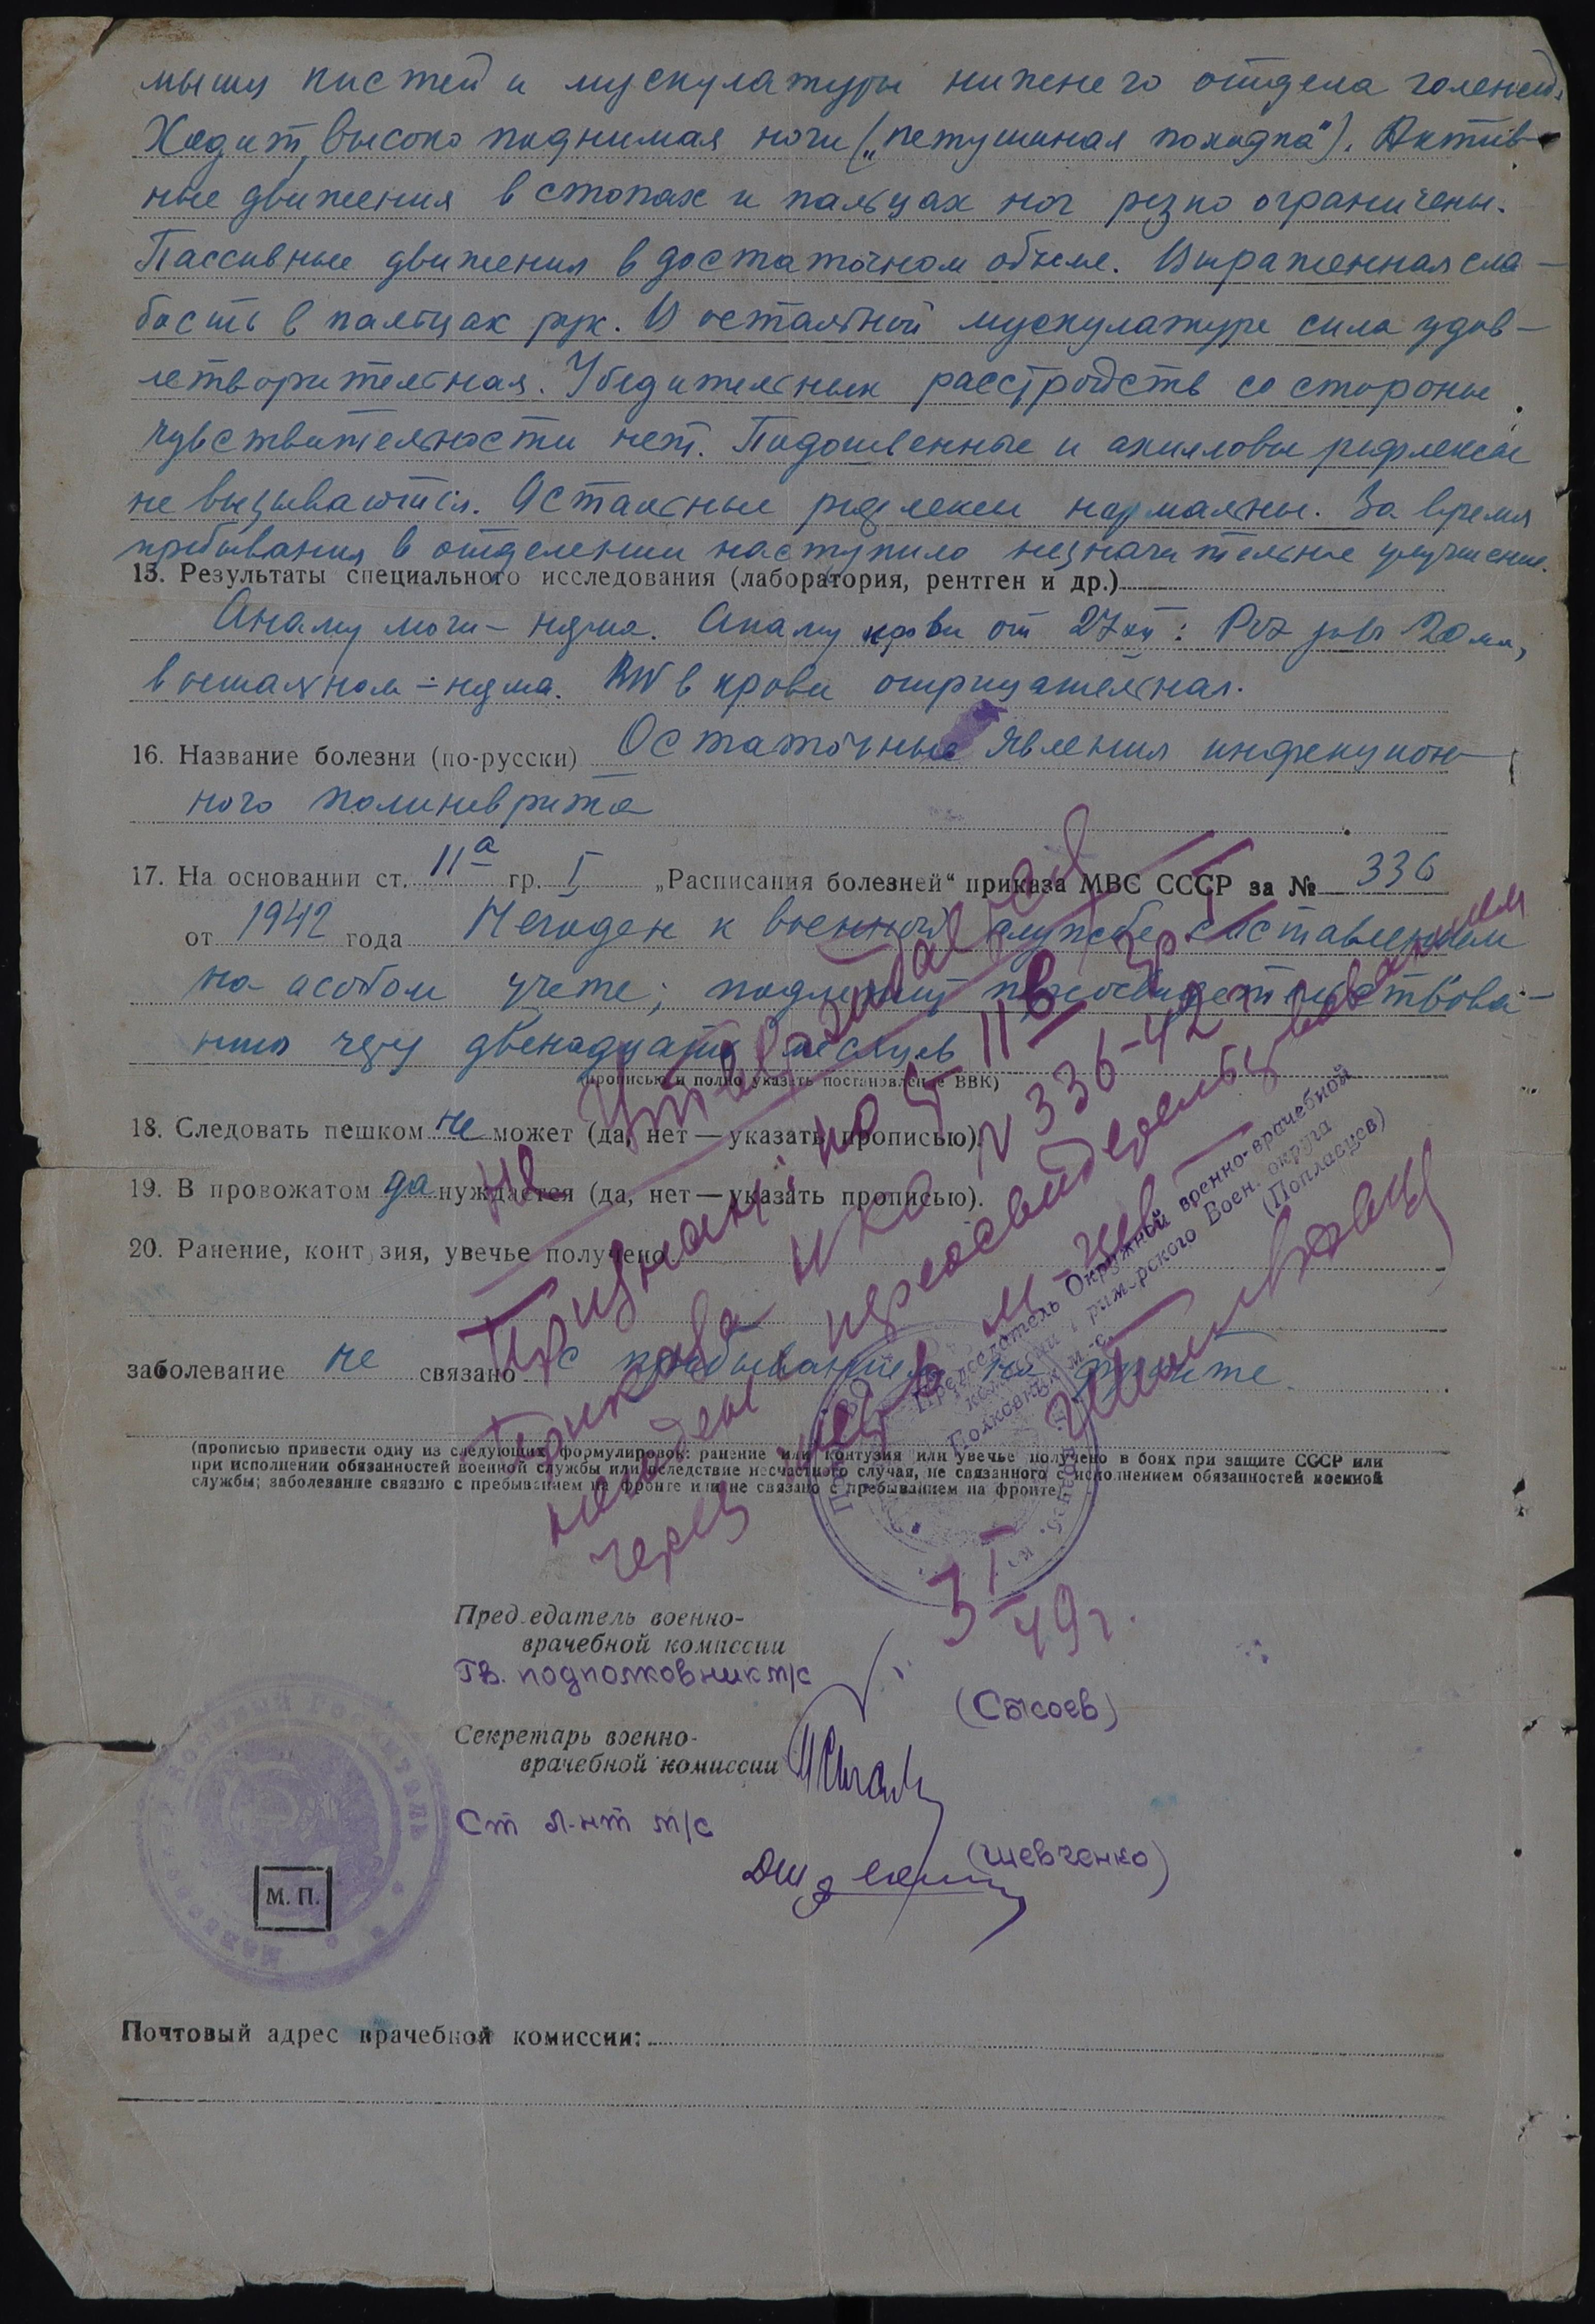 мышц кистей и мускулатуры нижнего отдела голеней.
Ходит, высоко поднимая ноги („петушиная походка"). Актив-
ные движения в стопах и пальцах ног резко ограничены.
Пассивные движения в достаточном объеме. Выраженная сла-
бость в пальцах рук. В остальной мускулатуре сила удов-
летворительная. Убедительных расстройств со стороны
чувствительности нет. Подошвенные и ахилловы рефлексы
не вызываются. Остальные рефлексы нормальны. За время
пребывания в отделении наступило незначительное улучшение.
15. Результаты специального исследования (лаборатория, рентген и др.)
Анализ мочи – норма. Анализ крови от 27 XII: РОЭ 20 мм,
в остальном – норма. RW в крови отрицательная.
16. Название болезни (по-русски) Остаточные явления инфекцион-
ного полиневрита
17. На основании ст. 11а гр. I „Расписания болезней" приказа МВС СССР за № 336
от 1942 года Негоден к военной службе с оставлением
на особом учете; подлежит переосвидетельствова-
нию через двенадцать месяцев
(прописью и полно указать постановление ВВК)
18. Следовать пешком не может (да, нет — указать прописью).
19. В провожатом да нуждается (да, нет — указать прописью).
20. Ранение, контузия, увечье получено
заболевание не связано с пребыванием на фронте.
(прописью привести одну из следующих формулировок: ранение или контузия или увечье получено в боях при защите СССР или
при исполнении обязанностей военной службы или вследствие несчастного случая, не связанного с исполнением обязанностей военной
службы; заболевание связано с пребыванием на фронте или не связано с пребыванием на фронте)
Не утверждаю
Признан: по ст. 11в гр. I
Приказа НКО № 336-42 г.
негоден с переосвидетельствованием
через шесть м-цев
Председатель Окружной военно-врачебной
комиссии Приморского Воен. округа
Полковник м-с (Поплавцев)
3/I 49 г.
Председатель военно-
врачебной комиссии
Гв. подполковник м/с
(Сысоев)
Секретарь военно-
врачебной комиссии
Ст л-нт м/с
(Шевченко)
М. П.
Почтовый адрес врачебной комиссии: